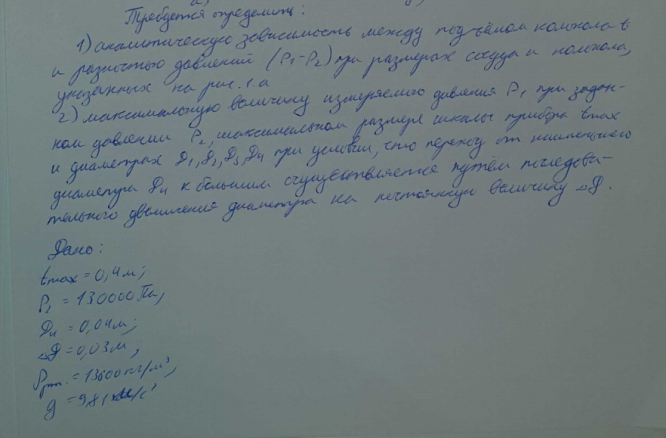 Требуется определить:
1) аналитическую зависимость между подъёмом колокола в
и разностью давлений (P₁-P₂) при размерах сосуда и колокола,
указанных на рис. 1.а
2) максимальную величину измеряемого давления P₁ при задан-
ном давлении P₂, максимальном размере шкалы прибора вmax
и диаметрах D₁, D₂, D₃, D₄ при условии, что переход от наименьшего
диаметра D₄ к большим осуществляется путём последова-
тельного движения диаметра на постоянную величину ΔD.
Дано:
вmax = 0,4м;
P₂ = 130000 Па;
D₄ = 0,04м;
ΔD = 0,03м;
ρрт. = 13600 кг/м³;
g = 9,81